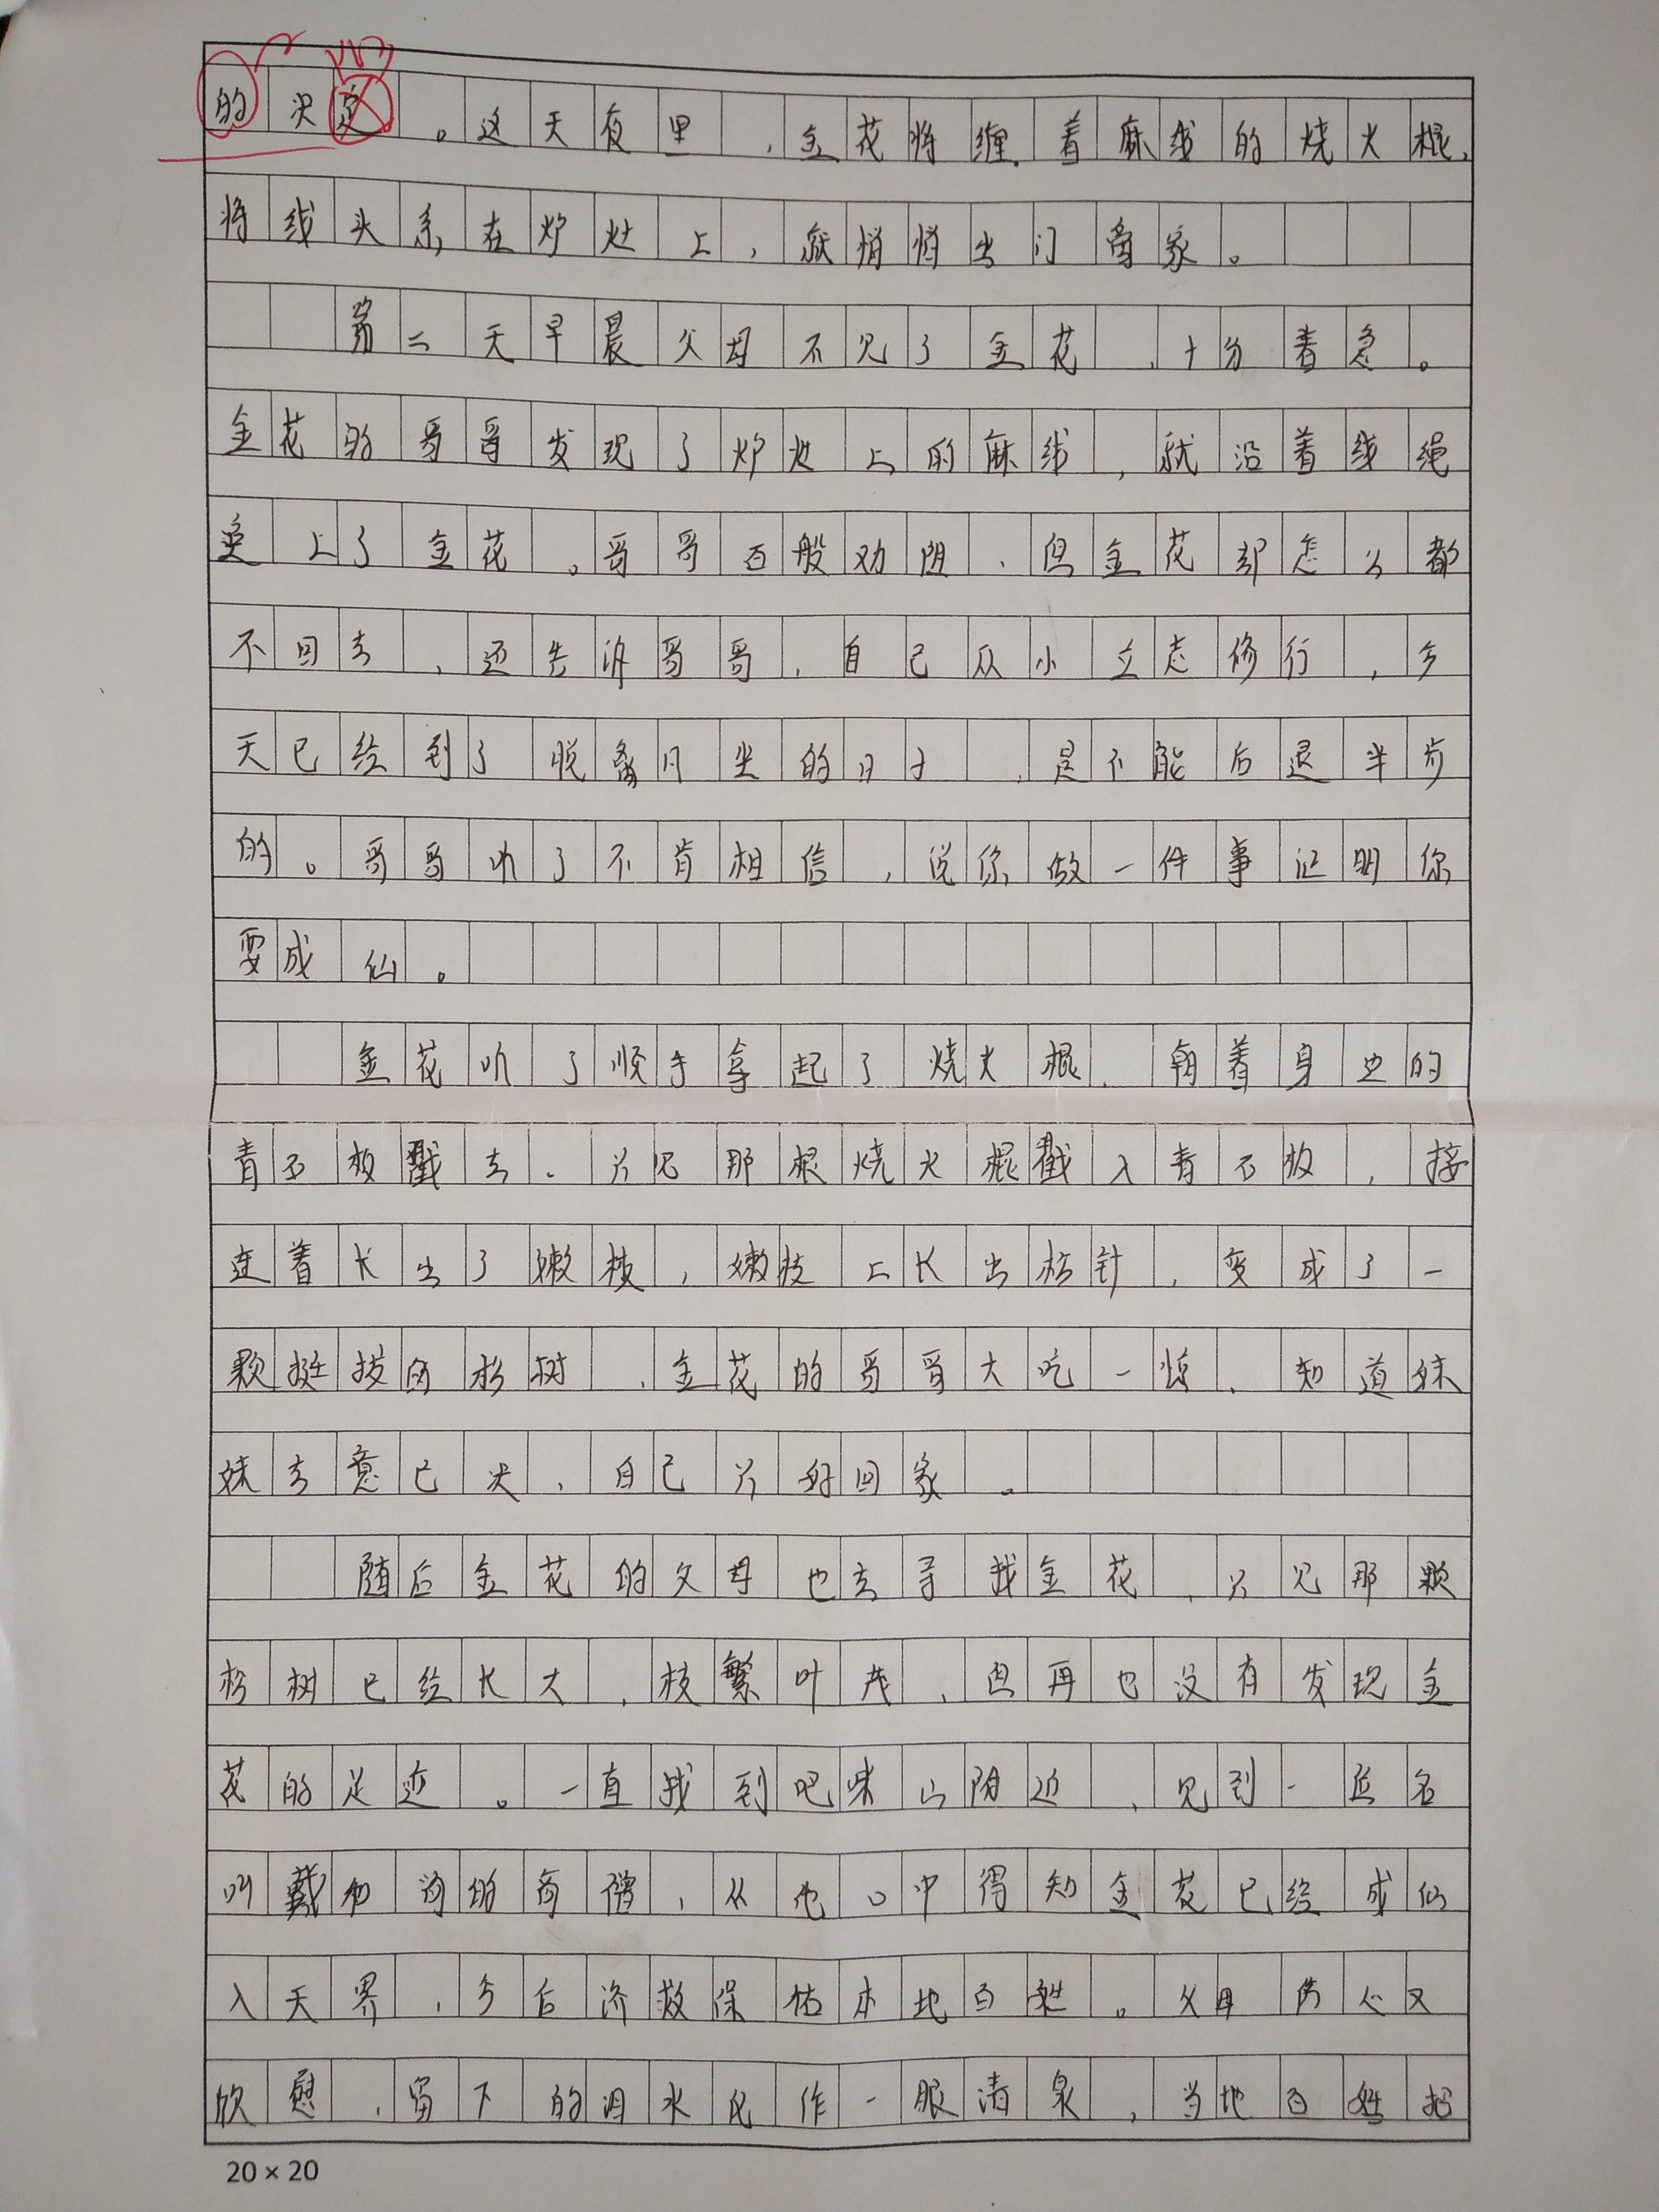 的决定。这天夜里,金花将缠着麻线的烧火棍,
将线头系在炉灶上,就悄悄出门离家。
第二天早晨父母不见了金花,十分着急。
金花的哥哥发现了炉灶上的麻线,就沿着线绳
追上了金花。哥哥百般劝阴,但金花却怎么都
不回去,还告诉哥哥,自己从小立志修行,今
天已经到了脱离凡尘的日子,是不能后退半步
的。哥哥听了不肯相信,说你做一件事证明你
要成仙。
金花听了顺手拿起了烧火棍,朝着身边的
青石板戳去。只见那根烧火棍戳入青石板,接
连着长出了嫩枝,嫩枝上长出松针,变成了一
颗挺拔的松树,金花的哥哥大吃一惊,知道妹
妹去意已决,自己只好回家。
随后金花的父母也去寻找金花,只见那颗
松树已经长大,枝繁叶茂,但再也没有发现金
花的足迹。一直找到吧咪山附近,见到一位名
叫戴和尚的高僧,从他口中得知金花已经成仙
入天界,今后济救保佑本地百姓。父母伤心又
欣慰,留下的泪水化作一眼清泉,当地百姓把
20×20